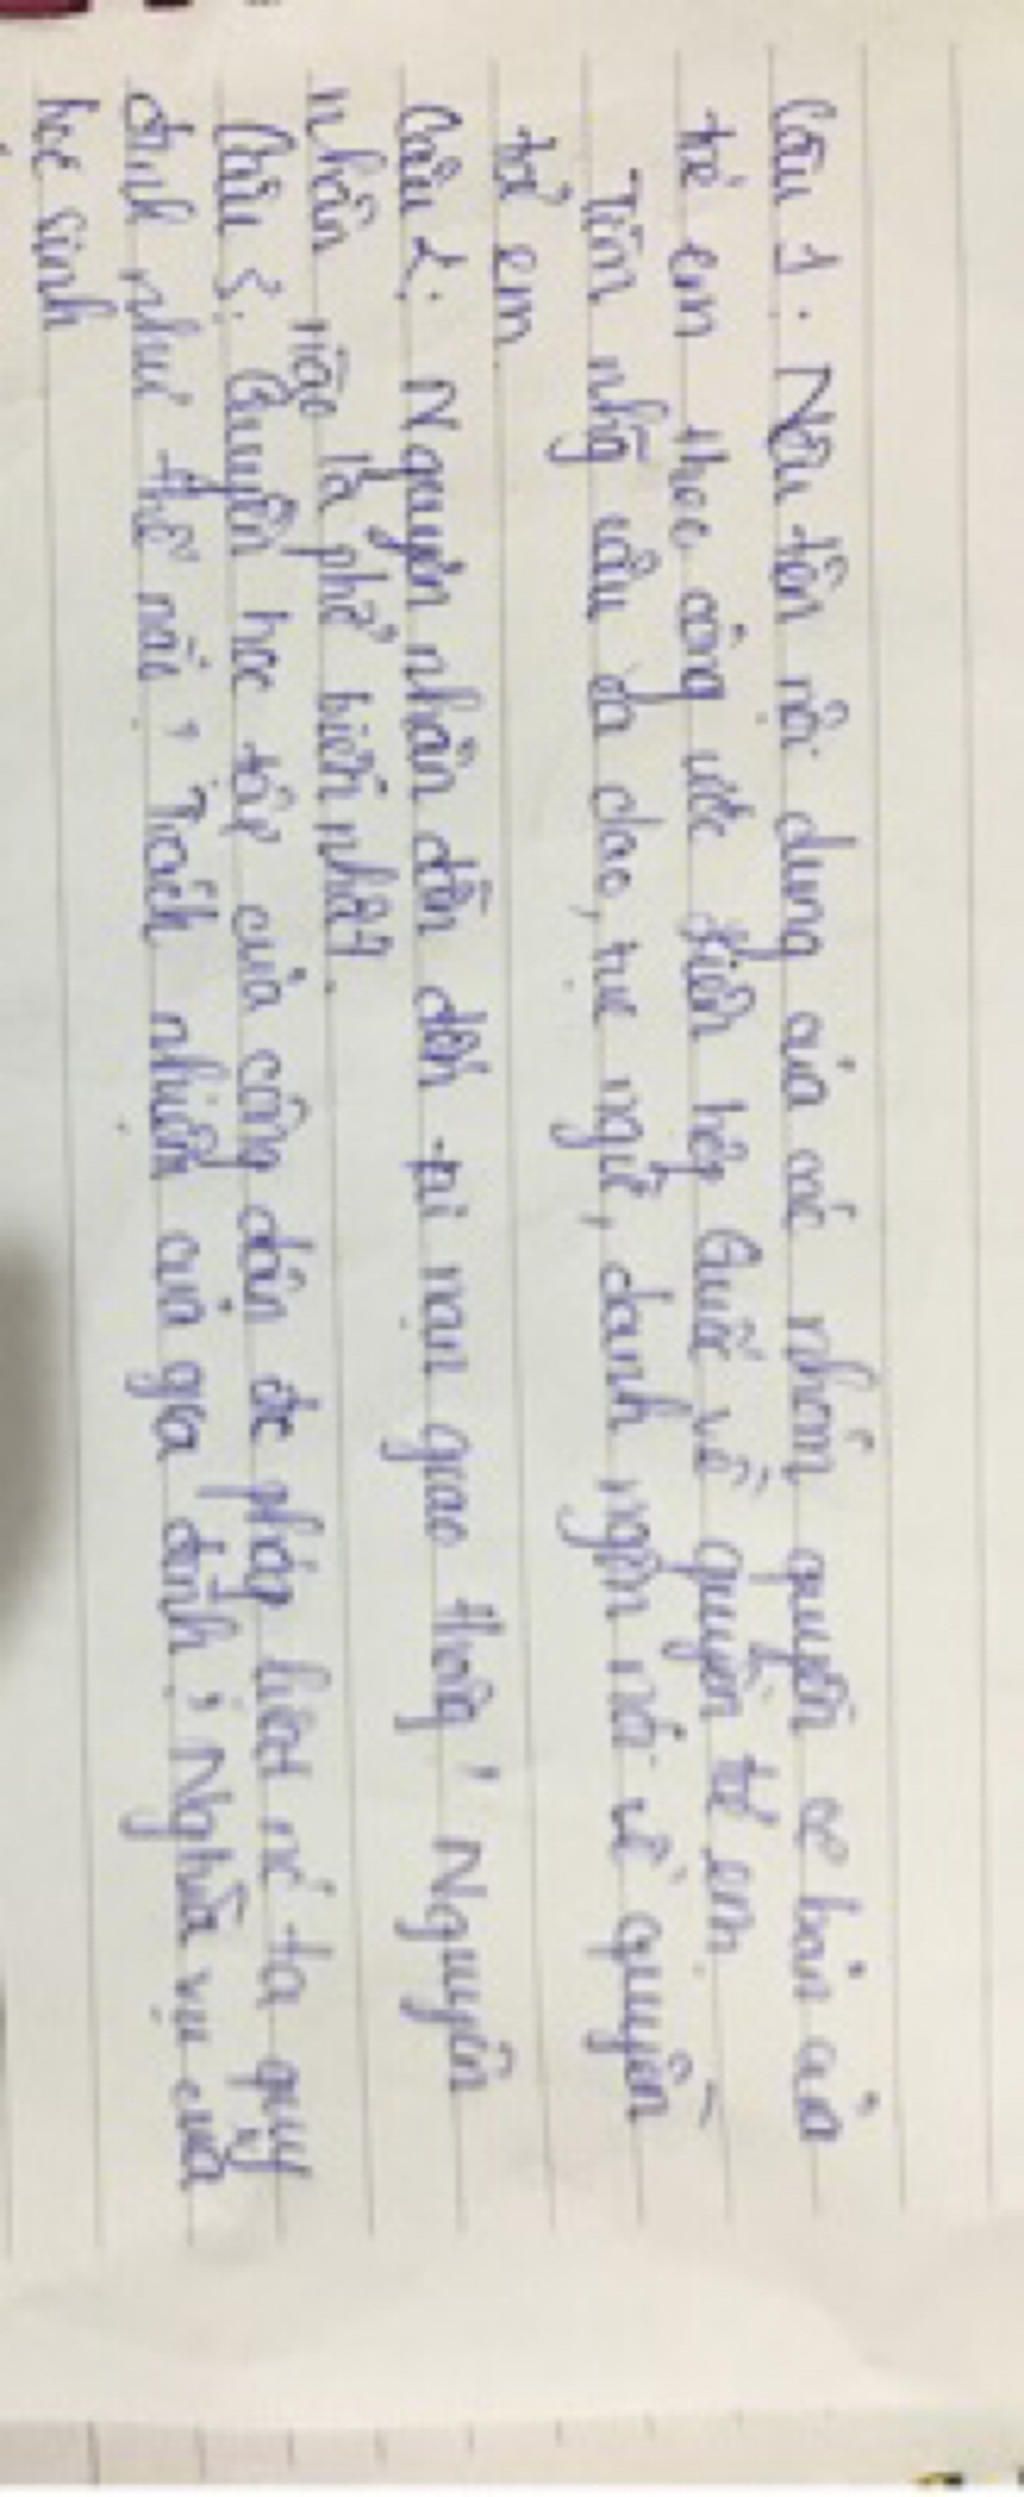 Câu 1: Nêu tên nội dung của các nhóm quyền cơ bản của
trẻ em theo công ước Liên hợp Quốc về quyền trẻ em.
Tìm những câu ca dao, tục ngữ, danh ngôn nói về quyền
trẻ em
Câu 2: Nguyên nhân dẫn đến tai nạn giao thông? Nguyên
nhân nào là phổ biến nhất.
Câu 3: Quyền học tập của công dân đc pháp luật nc ta quy
định như thế nào? Trách nhiệm của gia đình? Nghĩa vụ của
học sinh